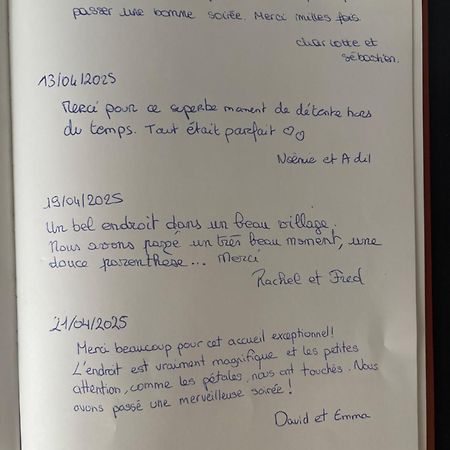 passer une bonne soirée. Merci milles fois.
Charlotte et
Sébastien.
13/04/2025
Merci pour ce superbe moment de détente hors
du temps. Tout était parfait ♡♡
Noémie et Adil
19/04/2025
Un bel endroit dans un beau village.
Nous avons passé un très beau moment, une
douce parenthèse... Merci
Rachel et Fred
21/04/2025
Merci beaucoup pour cet accueil exceptionnel!
L'endroit est vraiment magnifique et les petites
attention, comme les pétales, nous ont touchés. Nous
avons passé une merveilleuse soirée!
David et Emma